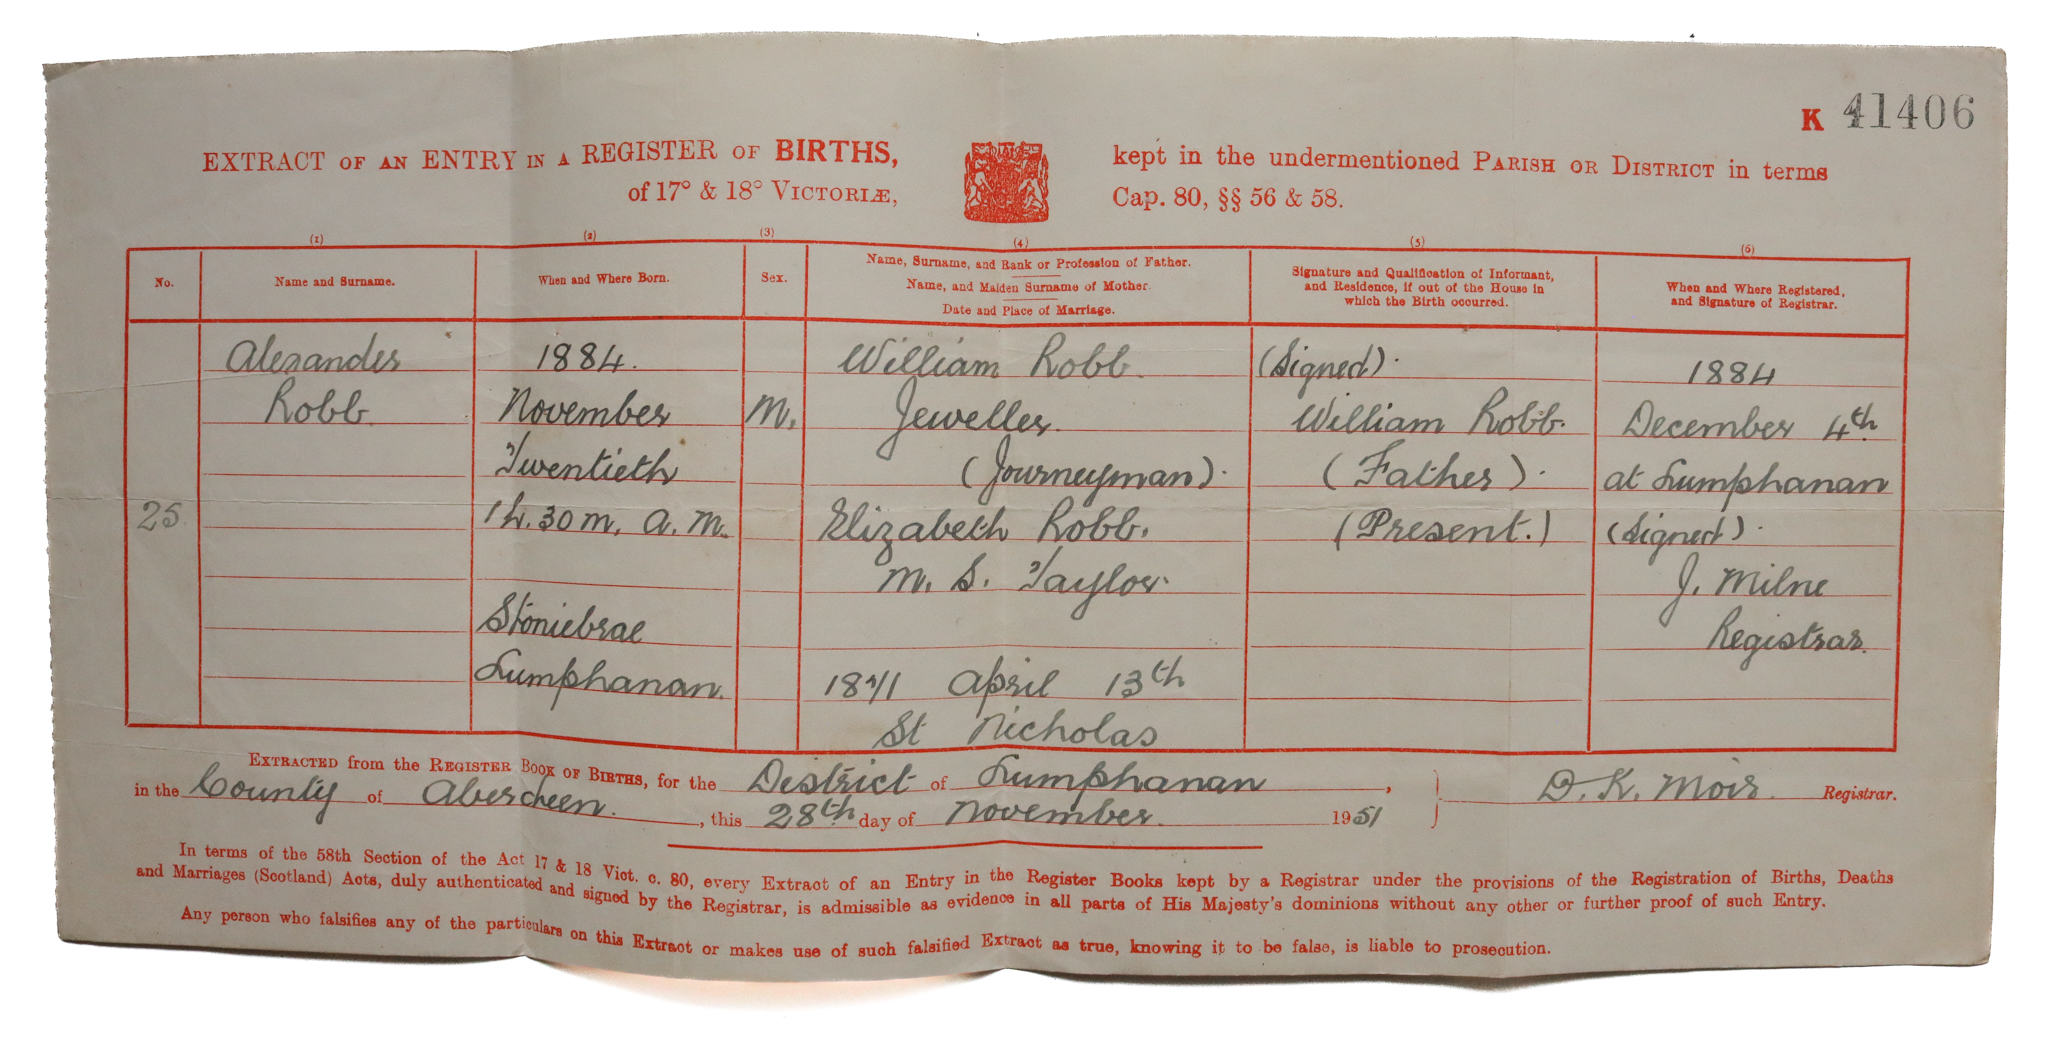 K 41406
EXTRACT OF AN ENTRY IN A REGISTER OF BIRTHS, kept in the undermentioned PARISH OR DISTRICT in terms
of 17° & 18° VICTORIÆ, Cap. 80, §§ 56 & 58.
(1) (2) (3) (4) (5) (6)
No.
Name and Surname.
When and Where Born.
Sex.
Name, Surname, and Rank or Profession of Father.
Name, and Maiden Surname of Mother.
Date and Place of Marriage.
Signature and Qualification of Informant,
and Residence, if out of the House in
which the Birth occurred.
When and Where Registered,
and Signature of Registrar.
25
Alexander
Robb.
1884.
November
Twentieth
1 h. 30 m. A. M.
Stoniebrae
Lumphanan.
M.
William Robb.
Jeweller.
(Journeyman).
Elizabeth Robb.
M. S. Taylor.
1871 April 13th
St Nicholas
(Signed).
William Robb.
(Father).
(Present.)
1884
December 4th
at Lumphanan
(Signed).
J. Milne
Registrar.
EXTRACTED from the REGISTER BOOK OF BIRTHS, for the District of Lumphanan,
in the County of Aberdeen., this 28th day of November. 1951
D. K. Moir. Registrar.
In terms of the 58th Section of the Act 17 & 18 Vict. c. 80, every Extract of an Entry in the Register Books kept by a Registrar under the provisions of the Registration of Births, Deaths
and Marriages (Scotland) Acts, duly authenticated and signed by the Registrar, is admissible as evidence in all parts of His Majesty's dominions without any other or further proof of such Entry.
Any person who falsifies any of the particulars on this Extract or makes use of such falsified Extract as true, knowing it to be false, is liable to prosecution.